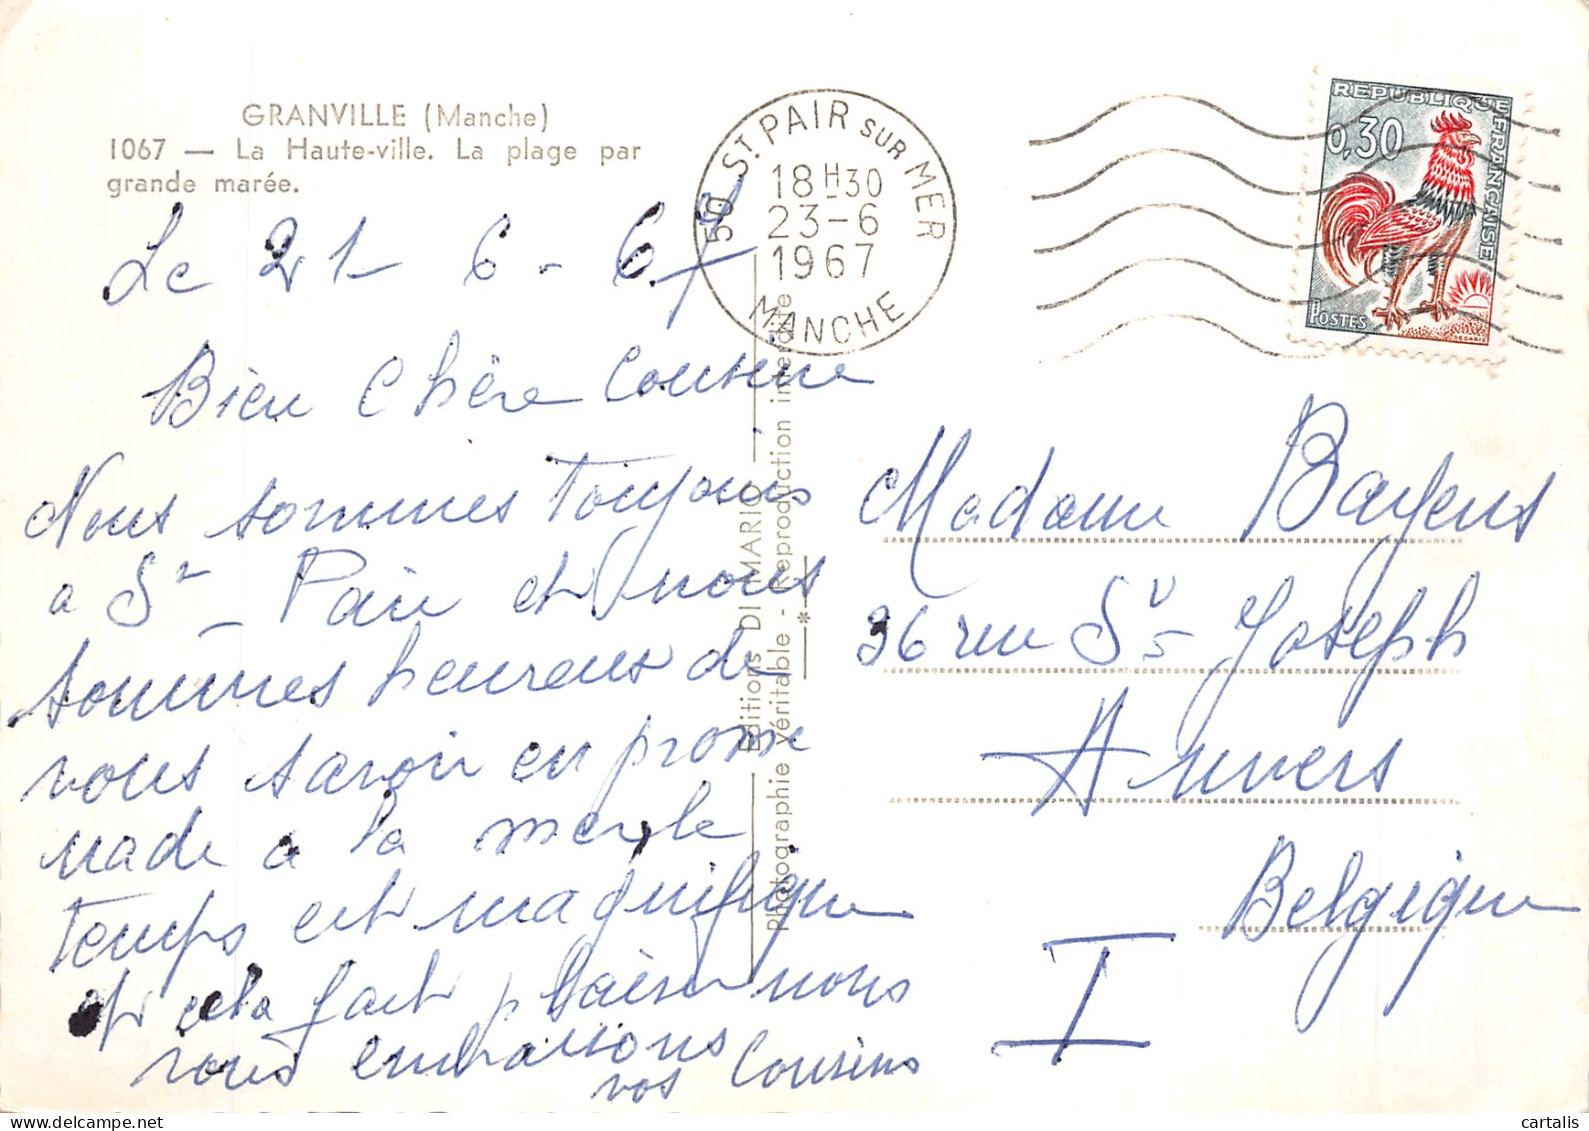 GRANVILLE (Manche)
1067 — La Haute-ville. La plage par
grande marée.
50 ST. PAIR SUR MER
18H30
23-6
1967
MANCHE
REPUBLIQUE FRANÇAISE
0,30
POSTES
DECARIS
Le 21 6 - 67
Bien Chère Cousine
Nous sommes Toujours
a St Pair et nous
sommes heureux de
vous savoir en prome
nade a la mer, le
Temps est magnifique
et cela fait plaisir nous
vous embrassons
vos Cousins
Editions DI MARIO
Photographie véritable - Reproduction interdite
*
Madame Bayens
36 rue St Joseph
Anvers
Belgique
I
cartalis